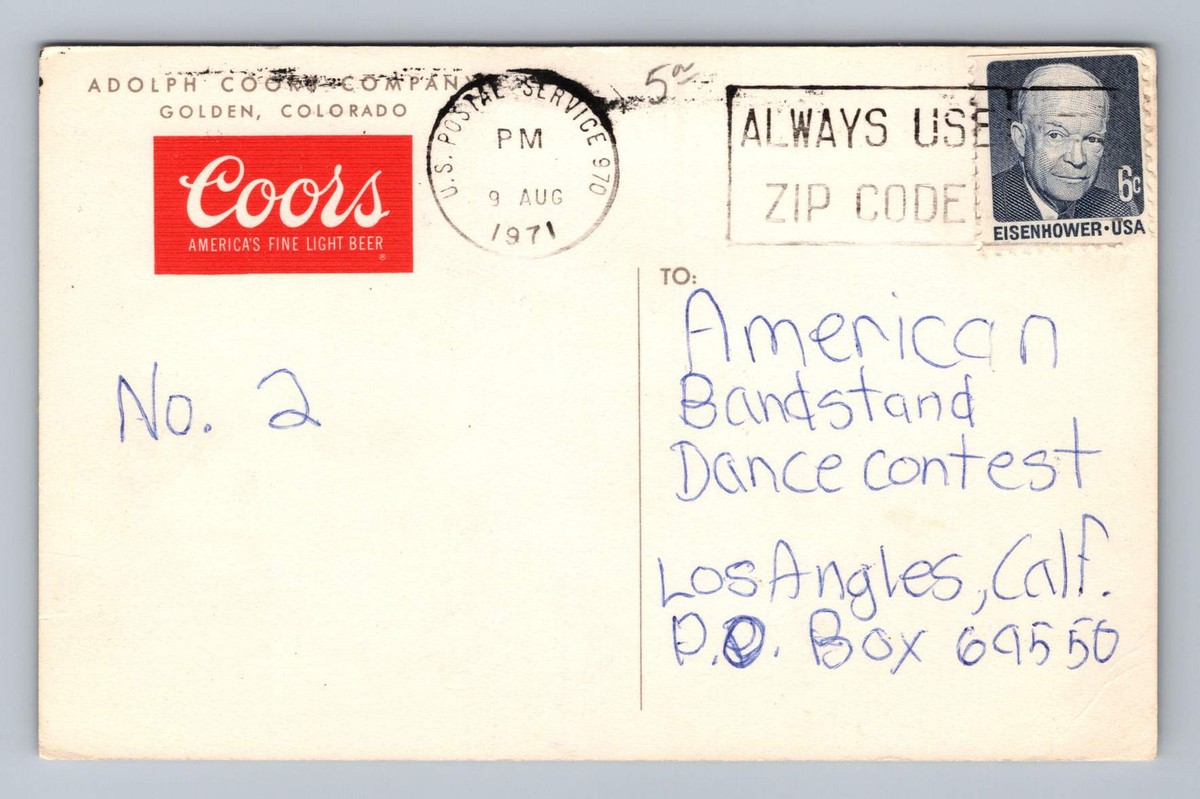 ADOLPH COORS COMPANY
GOLDEN, COLORADO
Coors
AMERICA'S FINE LIGHT BEER
®
U.S. POSTAL SERVICE 970
PM
9 AUG
1971
ALWAYS USE
ZIP CODE
6c
EISENHOWER·USA
TO:
American
Bandstand
Dance contest
Los Angles, Calf.
P.O. Box 69550
No. 2